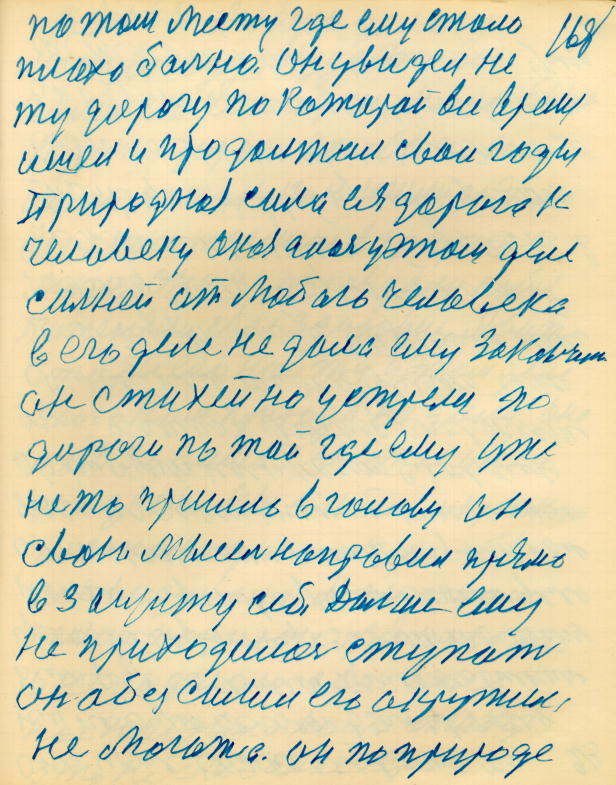 по том месту где ему стало 168
плохо больно. он увидел не
ту дорогу по которай все время
ишел и продолжал свои годы
Природная сила ея дорога к
человеку она
силней от любого человека
в его деле не дала ему Закончит
он стихейно устрела по
дороги по той где ему уже
не то пришло в голову он
свои мысли направил прямо
в Защиту себя Дальше ему
не приходилося ступат
он обез силил его окружил,
не могота. он по природе